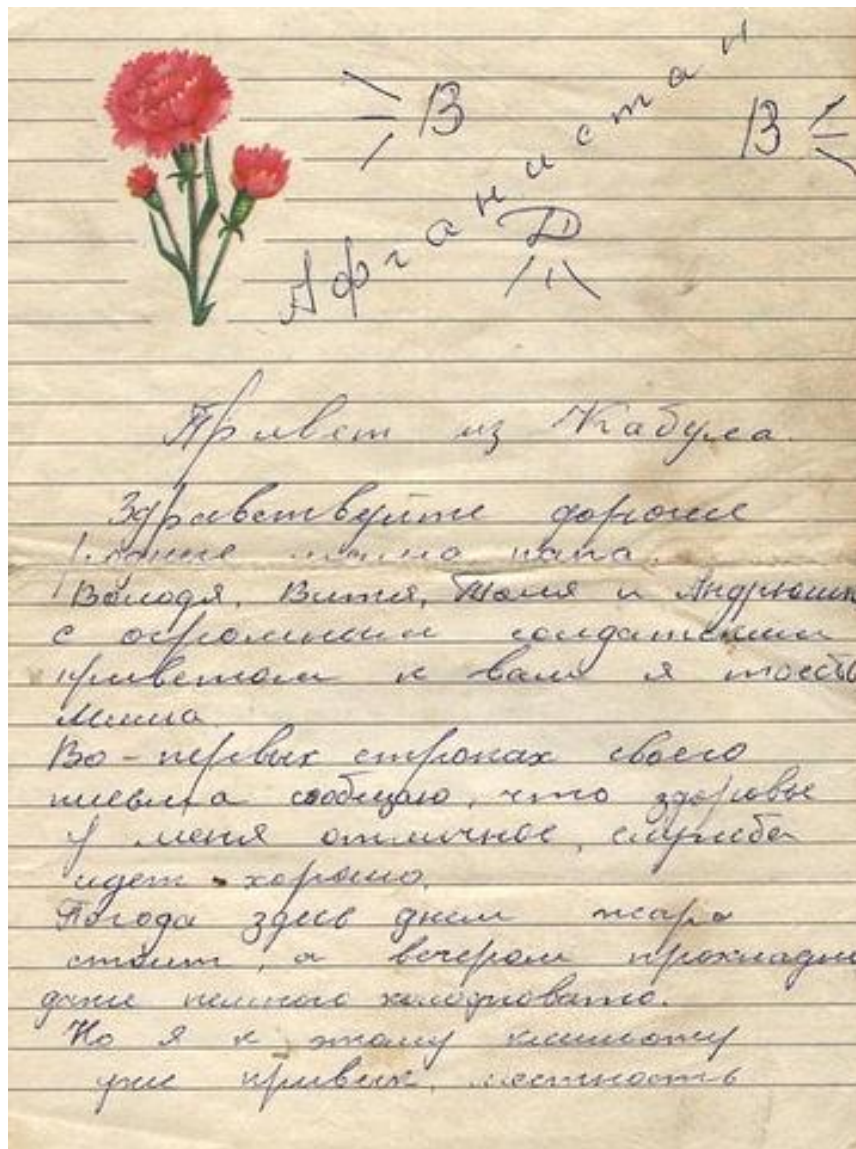 В Афганистан В
Д
Привет из Кабула.
Здравствуйте дорогие
родные мама папа.
Володя, Витя, Толя и Андрюша
с огромным солдатским
приветом к вам я тоесть
Миша
Во-первых строках своего
письма сообщаю, что здоровье
у меня отличное, служба
идет хорошо.
Погода здесь днем жара
стоит, а вечером прохладно
даже немного холодновато.
Но я к этому климату
уже привык, местность